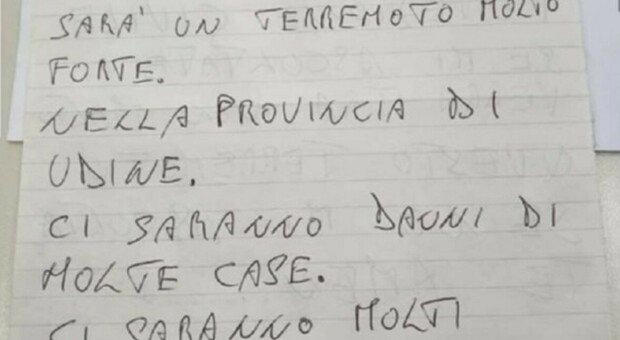 SARA' UN TERREMOTO MOLTO
FORTE.
NELLA PROVINCIA DI
UDINE.
CI SARANNO DANNI DI
MOLTE CASE.
CI SARANNO MOLTI